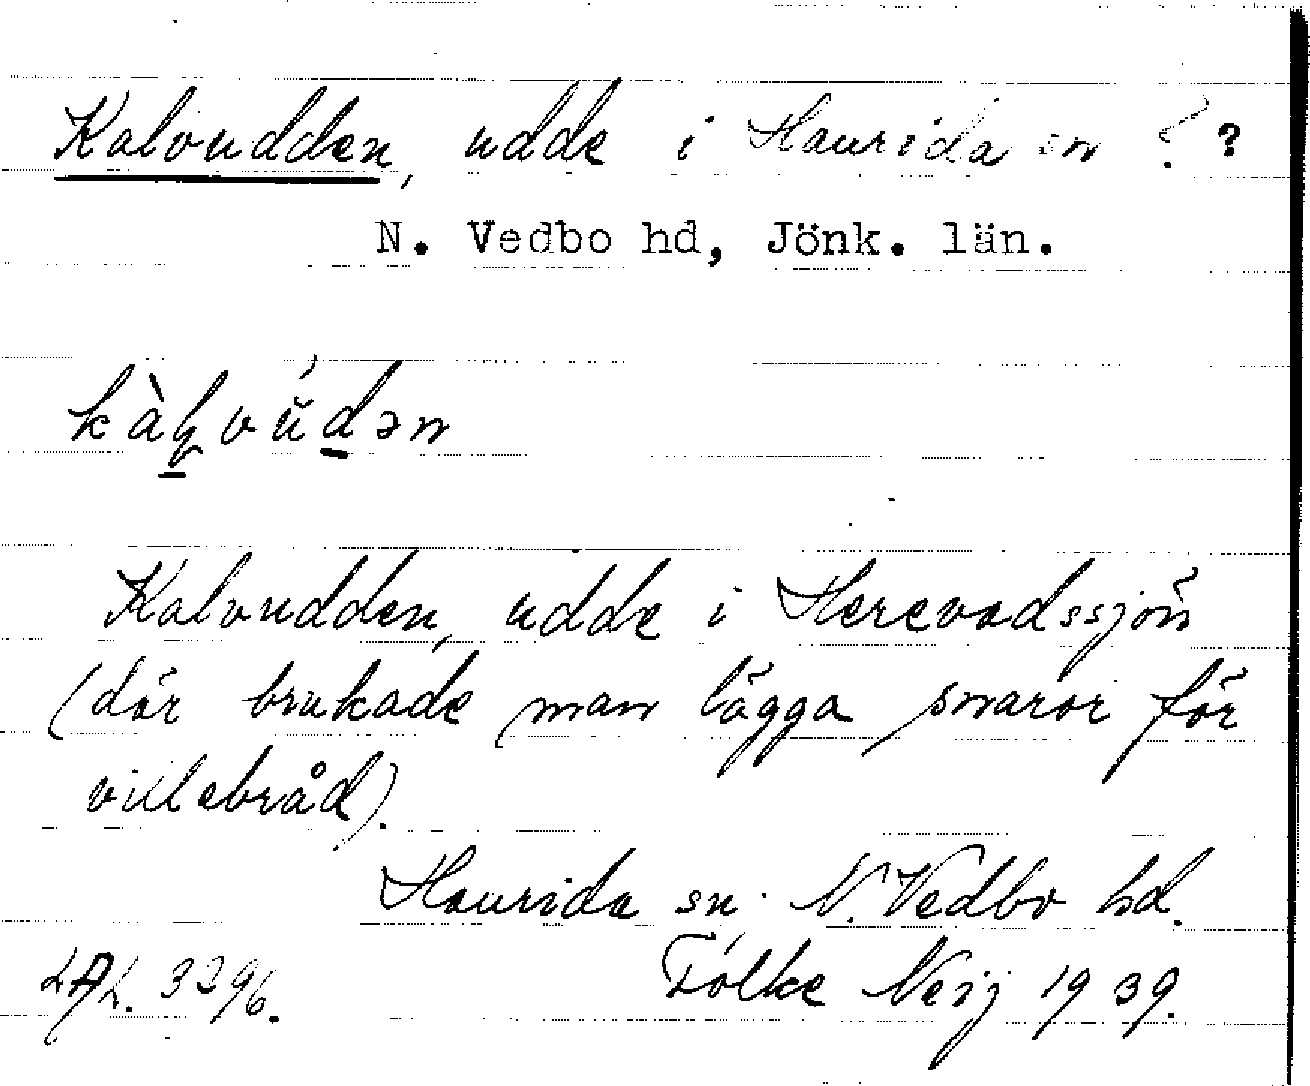 Kalvudden, udde i Haurida sn ? ?
N. Vedbo hd, Jönk. län.
Kalvudden, udde i Herevadssjön
(där brukade man lägga snaror för
villebråd).
Haurida sn. N. Vedbo hd.
3296. Folke Neij 1939.